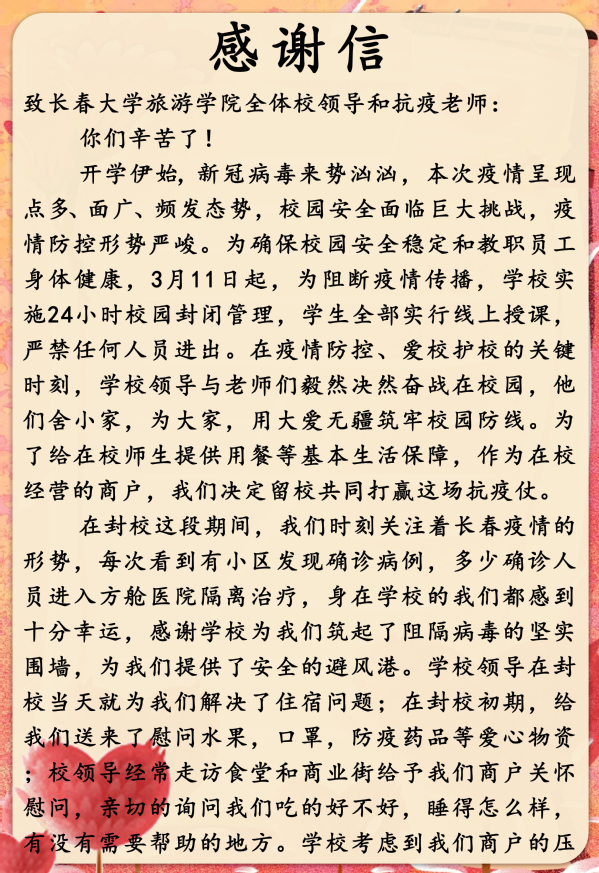 感谢信
致长春大学旅游学院全体校领导和抗疫老师：
你们辛苦了！
开学伊始，新冠病毒来势汹汹，本次疫情呈现
点多、面广、频发态势，校园安全面临巨大挑战，疫
情防控形势严峻。为确保校园安全稳定和教职员工
身体健康，3月11日起，为阻断疫情传播，学校实
施24小时校园封闭管理，学生全部实行线上授课，
严禁任何人员进出。在疫情防控、爱校护校的关键
时刻，学校领导与老师们毅然决然奋战在校园，他
们舍小家，为大家，用大爱无疆筑牢校园防线。为
了给在校师生提供用餐等基本生活保障，作为在校
经营的商户，我们决定留校共同打赢这场抗疫仗。
在封校这段期间，我们时刻关注着长春疫情的
形势，每次看到有小区发现确诊病例，多少确诊人
员进入方舱医院隔离治疗，身在学校的我们都感到
十分幸运，感谢学校为我们筑起了阻隔病毒的坚实
围墙，为我们提供了安全的避风港。学校领导在封
校当天就为我们解决了住宿问题；在封校初期，给
我们送来了慰问水果，口罩，防疫药品等爱心物资
；校领导经常走访食堂和商业街给予我们商户关怀
慰问，亲切的询问我们吃的好不好，睡得怎么样，
有没有需要帮助的地方。学校考虑到我们商户的压